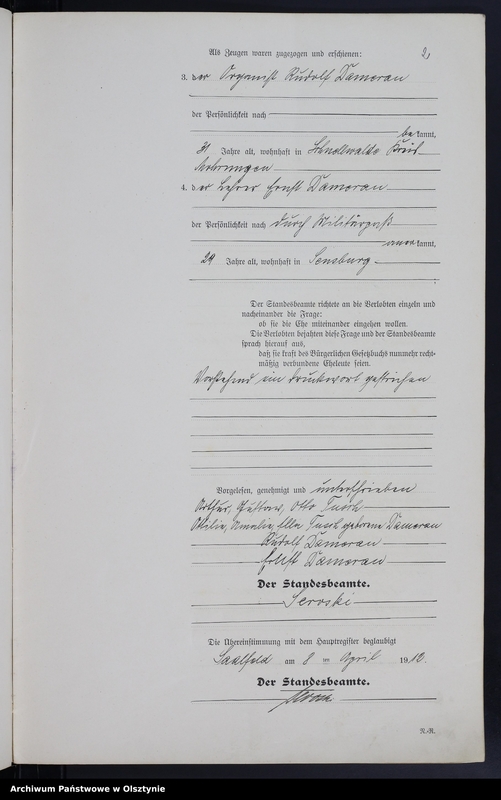 Als Zeugen waren zugezogen und erschienen:
2,
3. der Organist Rudolf Dameran
der Persönlichkeit nach
bekannt,
31 Jahre alt, wohnhaft in Schnellwalde Kreis
Mohrungen
4. der Lehrer Ernst Dameran
der Persönlichkeit nach durch Militärpaß
anerkannt,
29 Jahre alt, wohnhaft in Sensburg
Der Standesbeamte richtete an die Verlobten einzeln und
nacheinander die Frage:
ob sie die Ehe miteinander eingehen wollen.
Die Verlobten bejahten diese Frage und der Standesbeamte
sprach hierauf aus,
daß sie kraft des Bürgerlichen Gesetzbuchs nunmehr recht-
mäßig verbundene Eheleute seien.
Vorstehend ein Druckwort gestrichen
Vorgelesen, genehmigt und unterschrieben
Arthur, Gustav, Otto Tusch
Ottilie, Amalie, Ella Tusch geborene Dameran
Rudolf Dameran
Ernst Dameran
Der Standesbeamte.
Seroski
Die Übereinstimmung mit dem Hauptregister beglaubigt
Saalfeld am 8 ten April 1912.
Der Standesbeamte.
N.-R.
Archiwum Państwowe w Olsztynie